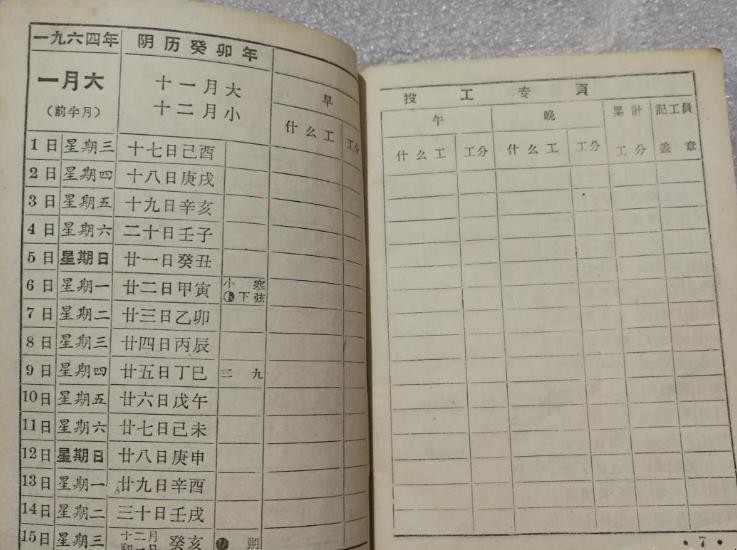 一九六四年 阴历癸卯年
一月大 十一月大
(前半月) 十二月小 早
什么工 工分
1日 星期三 十七日己酉
2日 星期四 十八日庚戌
3日 星期五 十九日辛亥
4日 星期六 二十日壬子
5日 星期日 廿一日癸丑
6日 星期一 廿二日甲寅 小寒 下弦
7日 星期二 廿三日乙卯
8日 星期三 廿四日丙辰
9日 星期四 廿五日丁巳 三九
10日 星期五 廿六日戊午
11日 星期六 廿七日己未
12日 星期日 廿八日庚申
13日 星期一 廿九日辛酉
14日 星期二 三十日壬戌
15日 星期三 十二月初一日 癸亥 朔
投工专頁
午 晚 累計 記工員
什么工 工分 什么工 工分 工分 盖章
·7·